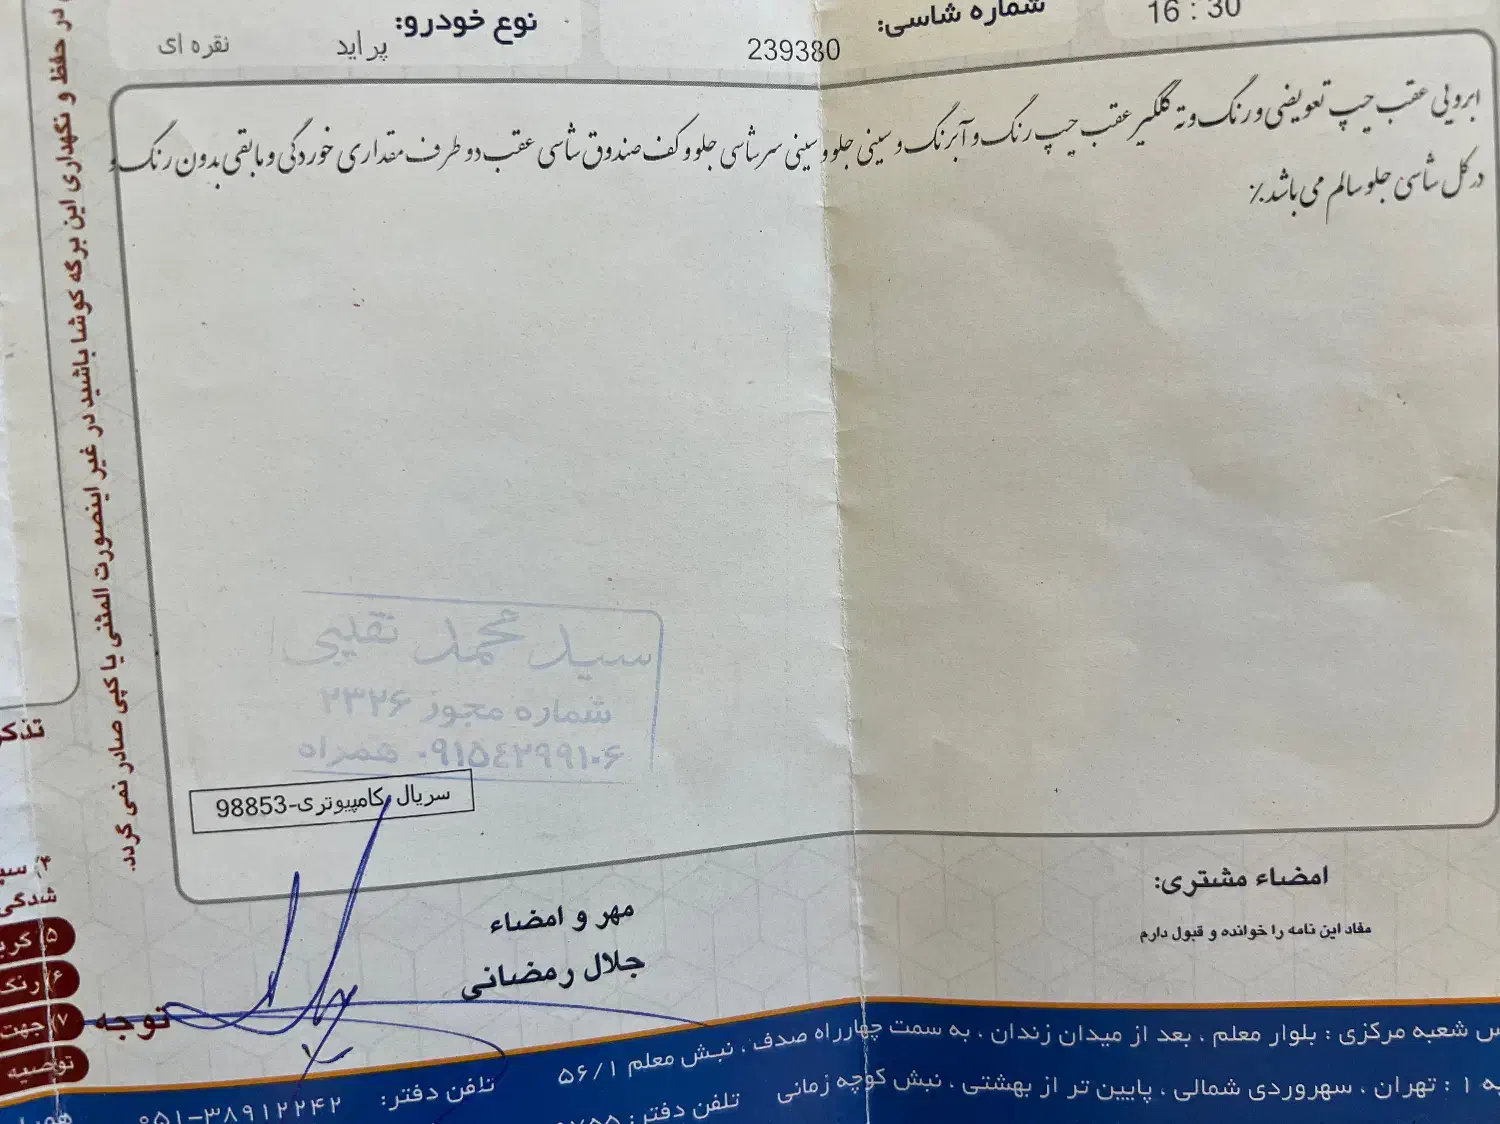 16 : 30
شماره شاسی:
239380
نوع خودرو:
پراید
نقره ای
ابرویی عقب چپ تعویضی و رنگ و ته گلگیر عقب چپ رنگ و آبرنگ و سینی جلو و سینی سرشاسی جلو و کف صندوق شاسی عقب دو طرف مقداری خوردگی و مابقی بدون رنگ و
در کل شاسی جلو سالم می باشد٪
در حفظ و نگهداری این برگه کوشا باشید در غیر اینصورت المثنی یا کپی صادر نمی گردد.
سید محمد نقیبی
شماره مجوز ۲۳۲۶
۰۹۱۵۴۲۹۹۱۰۶ همراه
سریال کامپیوتری-98853
امضاء مشتری:
مفاد این نامه را خوانده و قبول دارم
مهر و امضاء
جلال رمضانی
تذکر
شدگی
۶) رنگ
۷) جهت
توجه
توصیه
شعبه مرکزی : بلوار معلم ، بعد از میدان زندان ، به سمت چهارراه صدف ، نبش معلم ۵۶/۱
تلفن دفتر: ۰۵۱-۳۸۹۱۲۲۴۲
۱ : تهران ، سهروردی شمالی ، پایین تر از بهشتی ، نبش کوچه زمانی
تلفن دفتر: